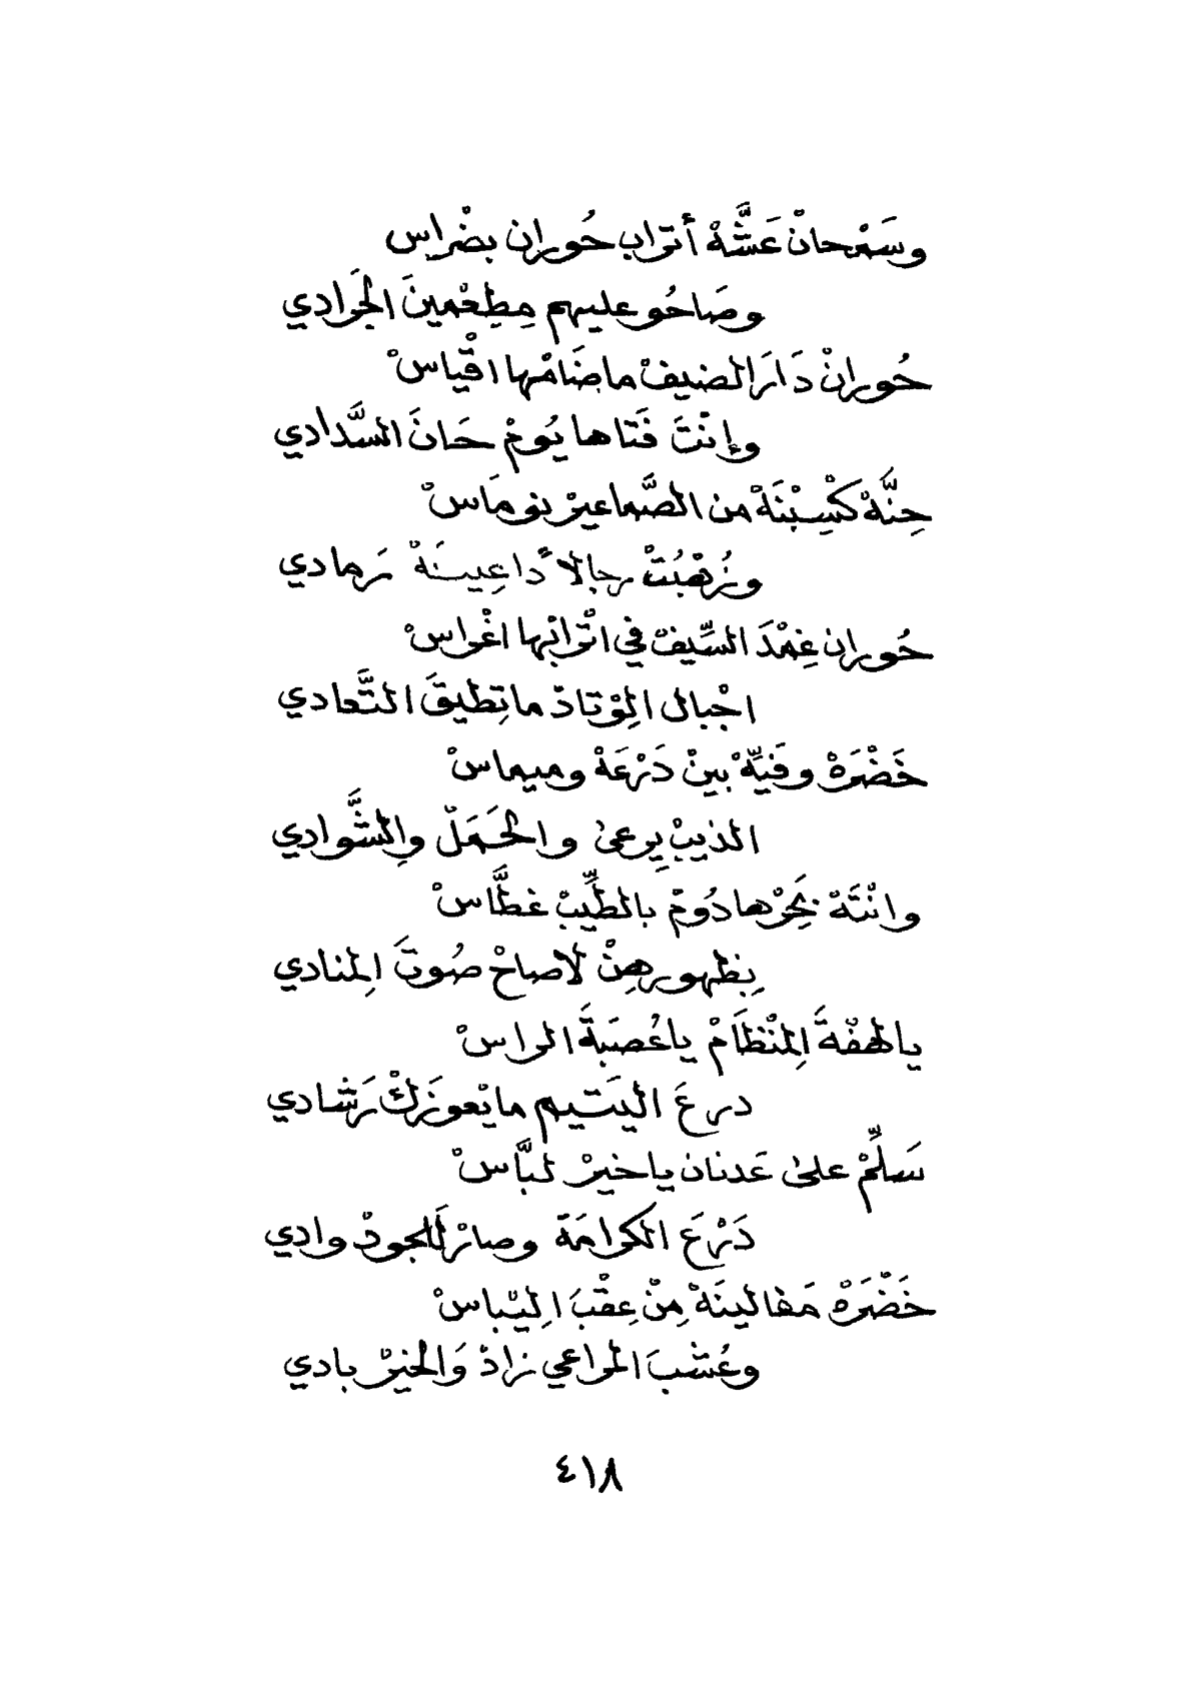 وسَمْحانْ عَشَّهْ أتراب حُوران بضْراس
وصَاحُو عليهم مِطِعْمينَ الجَوادي
حُورانْ دَارَ الضيفْ ماضَامْها اقْياسْ
وإنْتَ فَتاها يُومْ حَانَ السَّدادي
حِنَّهْ كسْبْنَهْ من الصَّماعيرْ نوماسْ
وزُهْبُتْ رجالاً داعِينَهْ رَمادي
حُوران غِمْدَ السِّيفْ في اتْرابْها اغْراسْ
اجْبال الِوْتادْ ماتِطيقَ التَّعادي
خَضْرَهْ وفَيِّهْ بينْ دَرْعَهْ وميماسْ
الذيبْ يِرعىٰ والحَمَلْ والشَّوادي
وانْتَهْ بَحِرْها دُومْ بالطِّيبْ غطَّاسْ
بِظهورهِنْ لاصاحْ صُوتَ المِنادي
يالهفْةَ المِنْظَامْ ياعُصبَةَ الراسْ
درعَ اليَتيم مايْعوزَكْ رَشادي
سَلِّمْ علىٰ عَدنان ياخيرْ لبَّاسْ
دَرْعَ الكرامَهْ وصارْ لَلجودْ وادي
خَضْرَهْ مَفالينَهْ مِنْ عِقْبَ الِيْباسْ
وعُشْبَ المراعي زادْ وَالخيرْ بادي
٤١٨